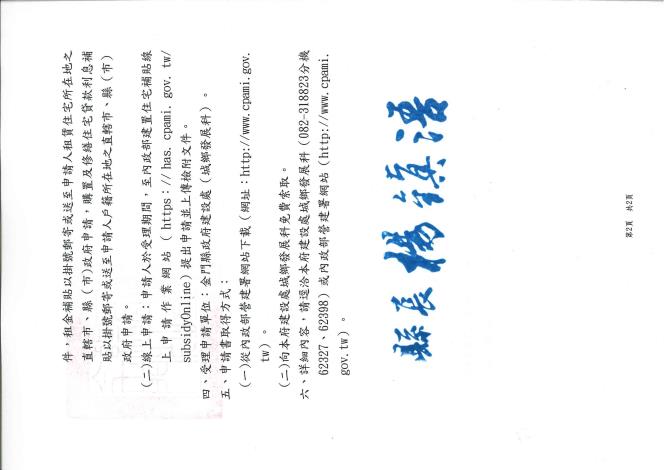 件，租金補貼以掛號郵寄或送至申請人租賃住宅所在地之
直轄市、縣（市)政府申請，購置及修繕住宅貸款利息補
貼以掛號郵寄或送至申請人戶籍所在地之直轄市、縣（市）
政府申請。
(二)線上申請：申請人於受理期間，至內政部建置住宅補貼線
上申請作業網站（https://has.cpami.gov.tw/
subsidyOnline）提出申請並上傳檢附文件。
四、受理申請單位：金門縣政府建設處（城鄉發展科）。
五、申請書取得方式：
(一)從內政部營建署網站下載（網址：http://www.cpami.gov.
tw）。
(二)向本府建設處城鄉發展科免費索取。
六、詳細內容，請逕洽本府建設處城鄉發展科（082-318823分機
62327、62398）或內政部營建署網站（http://www.cpami.
gov.tw）。
縣長楊鎮浯
第2頁 共2頁